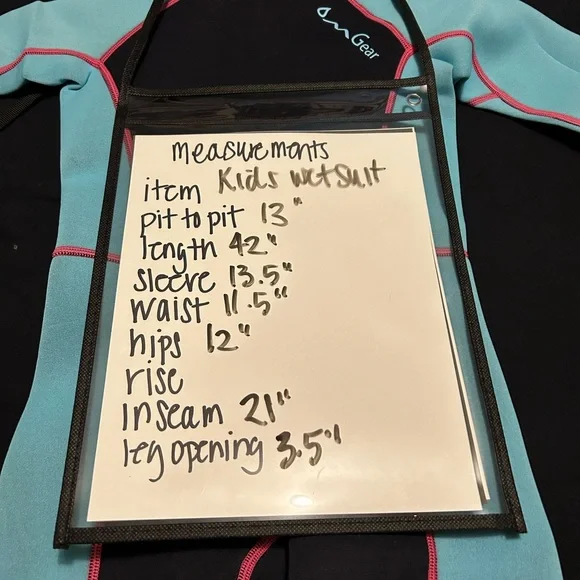 Gear
measurements
item Kids wetsuit
pit to pit 13"
length 42"
sleeve 13.5"
waist 11.5"
hips 12"
rise
inseam 21"
leg opening 3.5"